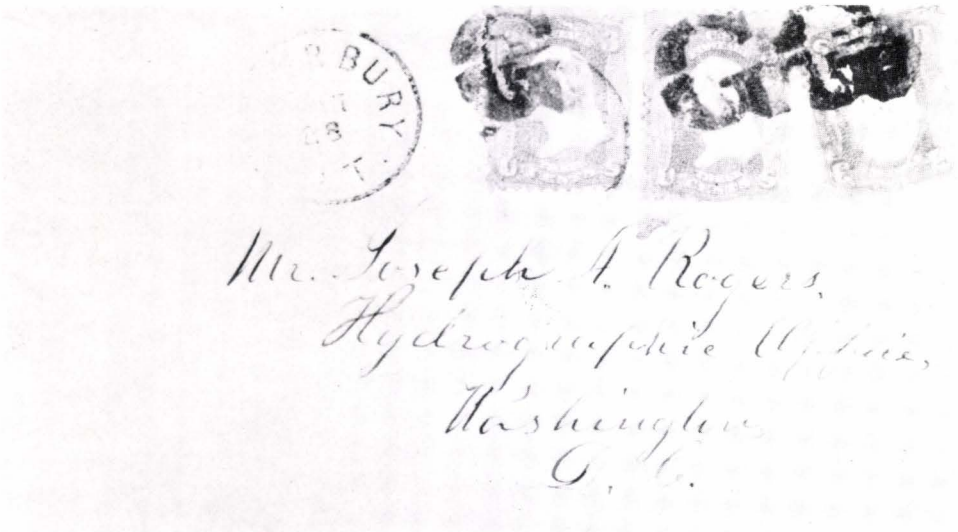 BURY
28
T
Mr. Joseph A. Rogers,
Hydrographic Office,
Washington
D. C.